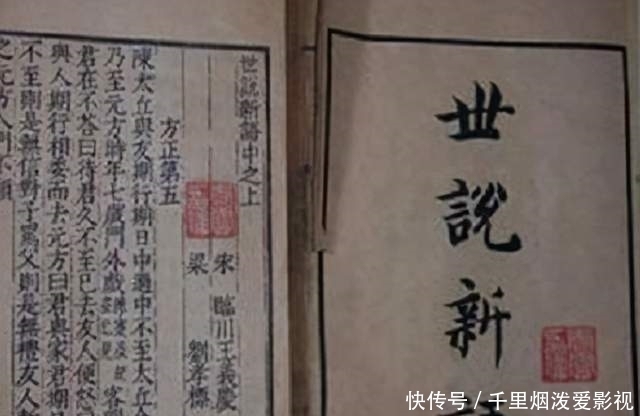 世說新
世說新語中之上
宋 臨川王義慶
梁 劉孝標
方正第五
陳太丘與友期行期日中過中不至太丘
乃至元方時年七歲門外戲客
君在不答曰待君久不至已去友人便怒
與人期行相委而去元方曰君與家君期
不至則是無信對子罵父則是無禮友人
之元方入門不顧
快传号／千里烟泼爱影视